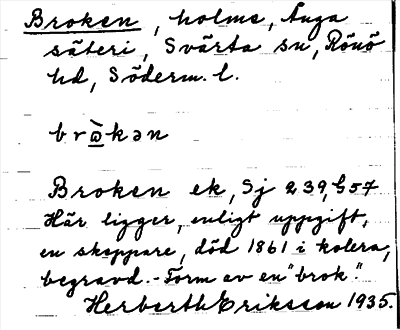 Broken, holme, Ånga
säteri, Svärta sn, Rönö
hd, Söderm. l.
brὼ̲kən
Broken ek, Sj 239, G 57
Här ligger, enligt uppgift,
en skeppare, död 1861 i kolera,
begravd. - Form av en "brok".
Herberth Eriksson 1935.